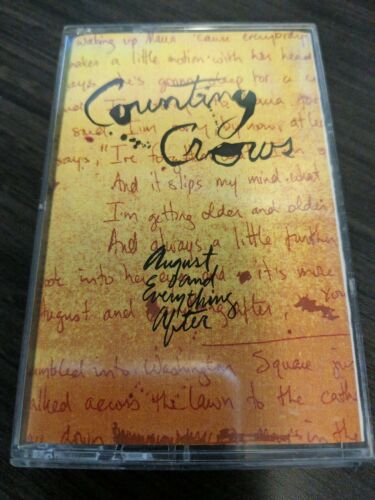 waking up Maria 'cause everybody
makes a little motion with her head
says, he's gonna sleep for a
Counting
Crows
said I'm by now, at
says, "I've
And it slips my mind what
I'm getting older and older
And always a little further
August
and
Everything
After
into her it's more
August and after, You
tumbled into Washington Square
walked across the lawn to the
down in the